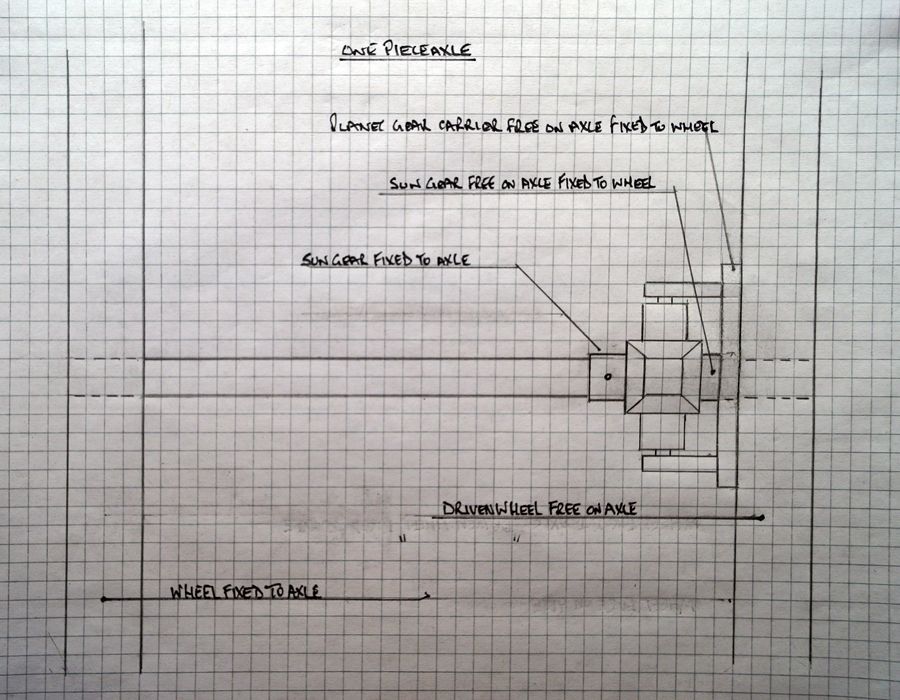 ONE PIECE AXLE
PLANET GEAR CARRIOR FREE ON AXLE FIXED TO WHEEL
SUN GEAR FREE ON AXLE FIXED TO WHEEL
SUN GEAR FIXED TO AXLE
DRIVEN WHEEL FREE ON AXLE
" "
WHEEL FIXED TO AXLE